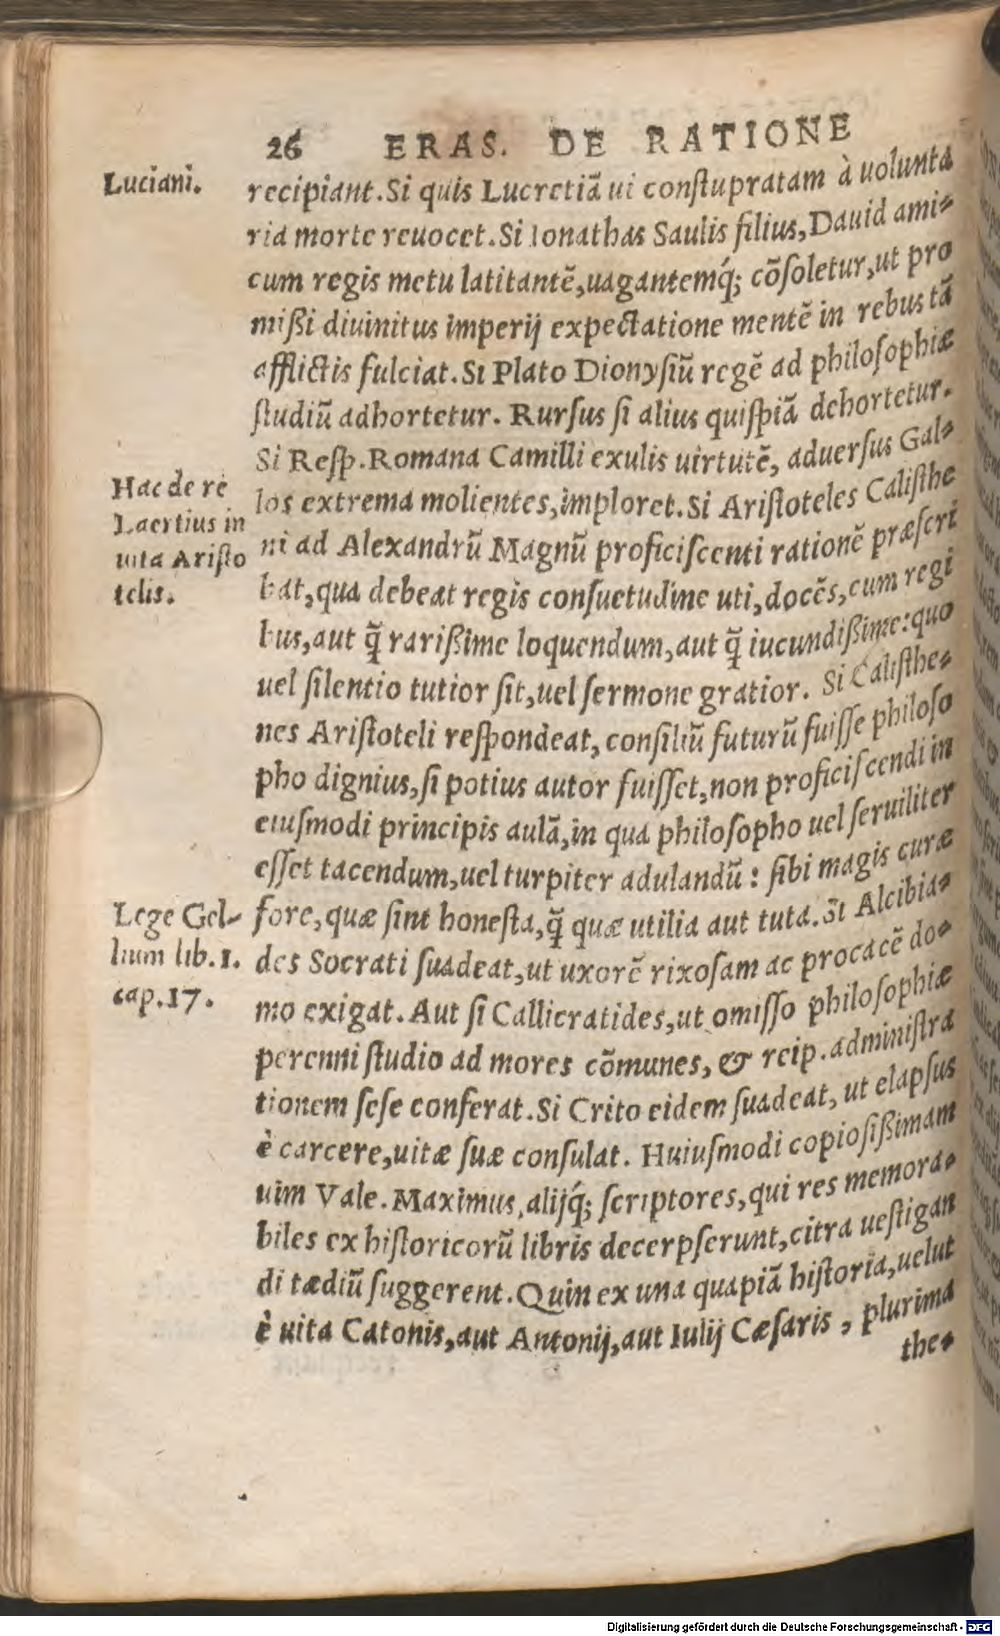 26 ERAS. DE RATIONE
Luciani.
recipiant. Si quis Lucretiā ui conſtupratam à uolunta
ria morte reuocet. Si Ionathas Saulis filius, Dauid ami⸗
cum regis metu latitantē, uagantemq́; cōſoletur, ut pro
mißi diuinitus imperij expectatione mentē in rebus tā
afflictis fulciat. Si Plato Dionyſiū regē ad philoſophiæ
ſtudiū adhortetur. Rurſus ſi alius quiſpiā dehortetur.
Si Reſp. Romana Camilli exulis uirtutē, aduerſus Gal⸗
los extrema molientes, imploret. Si Ariſtoteles Caliſthe
ni ad Alexandrū Magnū proficiſcenti rationē præſcri
bat, qua debeat regis conſuetudine uti, docēs, cum regi
bus, aut q̃ rarißime loquendum, aut q̃ iucundißime: quo
uel ſilentio tutior ſit, uel ſermone gratior. Si Caliſthe⸗
nes Ariſtoteli reſpondeat, conſiliū futurū fuiſſe philoſo
pho dignius, ſi potius autor fuiſſet, non proficiſcendi in
eiuſmodi principis aulā, in qua philoſopho uel ſeruiliter
eſſet tacendum, uel turpiter adulandū: ſibi magis curæ
fore, quæ ſint honeſta, q̃ quæ utilia aut tuta. Si Alcibia⸗
des Socrati ſuadeat, ut uxorē rixoſam ac procacē do⸗
mo exigat. Aut ſi Callicratides, ut omiſſo philoſophiæ
perenni ſtudio ad mores cōmunes, & reip. adminiſtra
tionem ſeſe conferat. Si Crito eidem ſuadeat, ut elapſus
è carcere, uitæ ſuæ conſulat. Huiuſmodi copioſißimam
uim Vale. Maximus, alijq́; ſcriptores, qui res memora⸗
biles ex hiſtoricorū libris decerpſerunt, citra ueſtigan
di tædiū ſuggerent. Quin ex una quapiā hiſtoria, uelut
è uita Catonis, aut Antonij, aut Iulij Cæſaris, plurima
the⸗
Hac de re
Laertius in
uita Ariſto
telis.
Lege Gel⸗
lium lib. 1.
cap. 17.
Digitalisierung gefördert durch die Deutsche Forschungsgemeinschaft - DFG